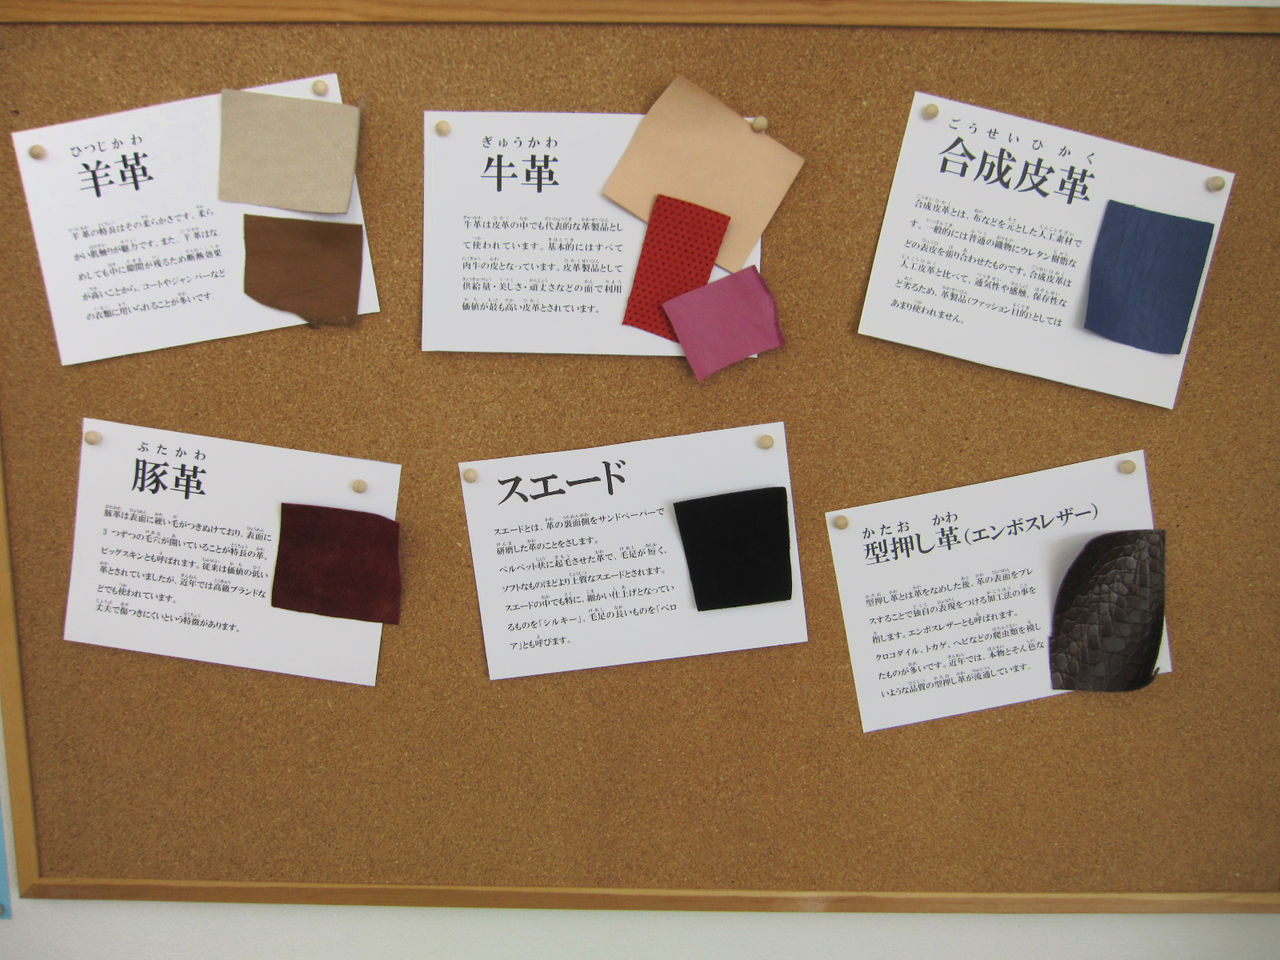 ひつじかわ
羊革
羊革の特長はその柔らかさです。柔ら
かい肌触りが魅力です。また、羊革はな
めしても中に隙間が残るため断熱効果
が高いことから、コートやジャンパーなど
の衣類に用いられることが多いです。
ぎゅうかわ
牛革
牛革は皮革の中でも代表的な革製品とし
て使われています。基本的にはすべて
肉牛の皮となっています。皮革製品として
供給量・美しさ・頑丈さなどの面で利用
価値が最も高い皮革とされています。
ごうせいひかく
合成皮革
合成皮革とは、布などを元とした人工素材で
す。一般的には普通の織物にウレタン樹脂な
どの表皮を張り合わせたものです。合成皮革は
人工皮革と比べて、通気性や感触、保存性な
ど劣るため、革製品(ファッション目的)としては
あまり使われません。
ぶたかわ
豚革
豚革は表面に硬い毛がつきぬけており、表面に
3つずつの毛穴が開いていることが特長の革。
ピッグスキンとも呼ばれます。従来は価値の低い
革とされていましたが、近年では高級ブランドな
どでも使われています。
丈夫で傷つきにくいという特徴があります。
スエード
スエードとは、革の裏面側をサンドペーパーで
研磨した革のことをさします。
ベルベット状に起毛させた革で、毛足が短く、
ソフトなものほど上質なスエードとされます。
スエードの中でも特に、細かい仕上げとなってい
るものを「シルキー」、毛足の長いものを「ベロ
ア」とも呼びます。
かたお かわ
型押し革(エンボスレザー)
型押し革とは革をなめした後、革の表面をプレ
スすることで独自の表現をつける加工法の事を
指します。エンボスレザーとも呼ばれます。
クロコダイル、トカゲ、ヘビなどの爬虫類を模し
たものが多いです。近年では、本物とそん色な
いような品質の型押し革が流通しています。